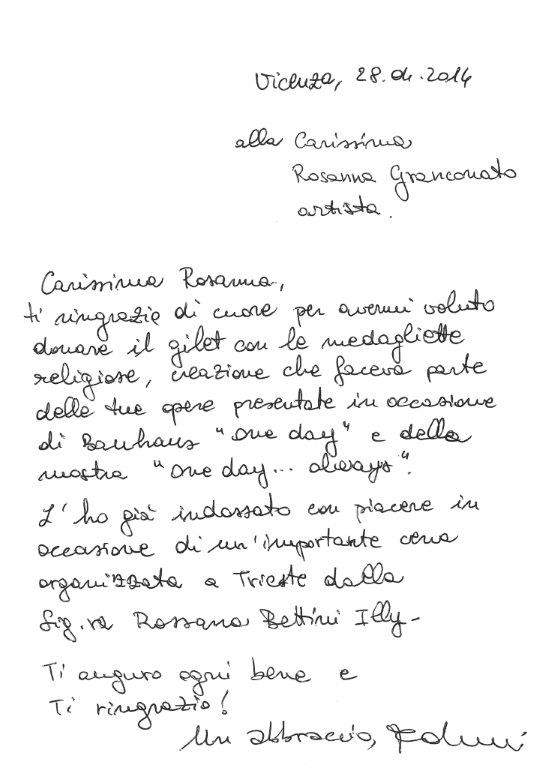 Vicenza, 28.04.2014
alla Carissima
Rosanna Granconato
artista.
Carissima Rosanna,
ti ringrazio di cuore per avermi voluto
donare il gilet con le medagliette
religiose, creazione che faceva parte
delle tue opere presentate in occasione
di Bauhaus "One day" e della
mostra "One day... always".
L'ho già indossato con piacere in
occasione di un'importante cena
organizzata a Trieste dalla
Sig.ra Rossana Bettini Illy-
Ti auguro ogni bene e
Ti ringrazio!
Un abbraccio,